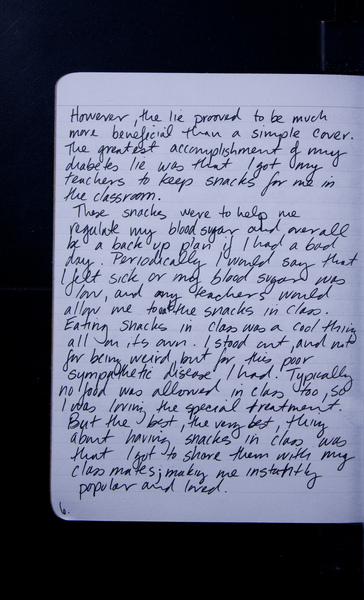 However, the lie prooved to be much
more beneficial than a simple cover.
The greatest accomplishment of my
diabetes lie was that I got my
teachers to keep snacks for me in
the classroom.
These snacks were to help me
regulate my blood sugar and overall
be a back up plan if I had a bad
day. Periodically I would say that
I felt sick or my blood sugar was
low, and my teachers would
allow me to eat the snacks in class.
Eating snacks in class was a cool thing
all on its own. I stood out, and not
for being weird, but for this poor
sympathetic disease I had. Typically
no food was allowed in class too, so
I was loving the special treatment.
But the best, the very best, thing
about having snacks in class was
that I got to share them with my
classmates; making me instantly
popular and loved.
6.